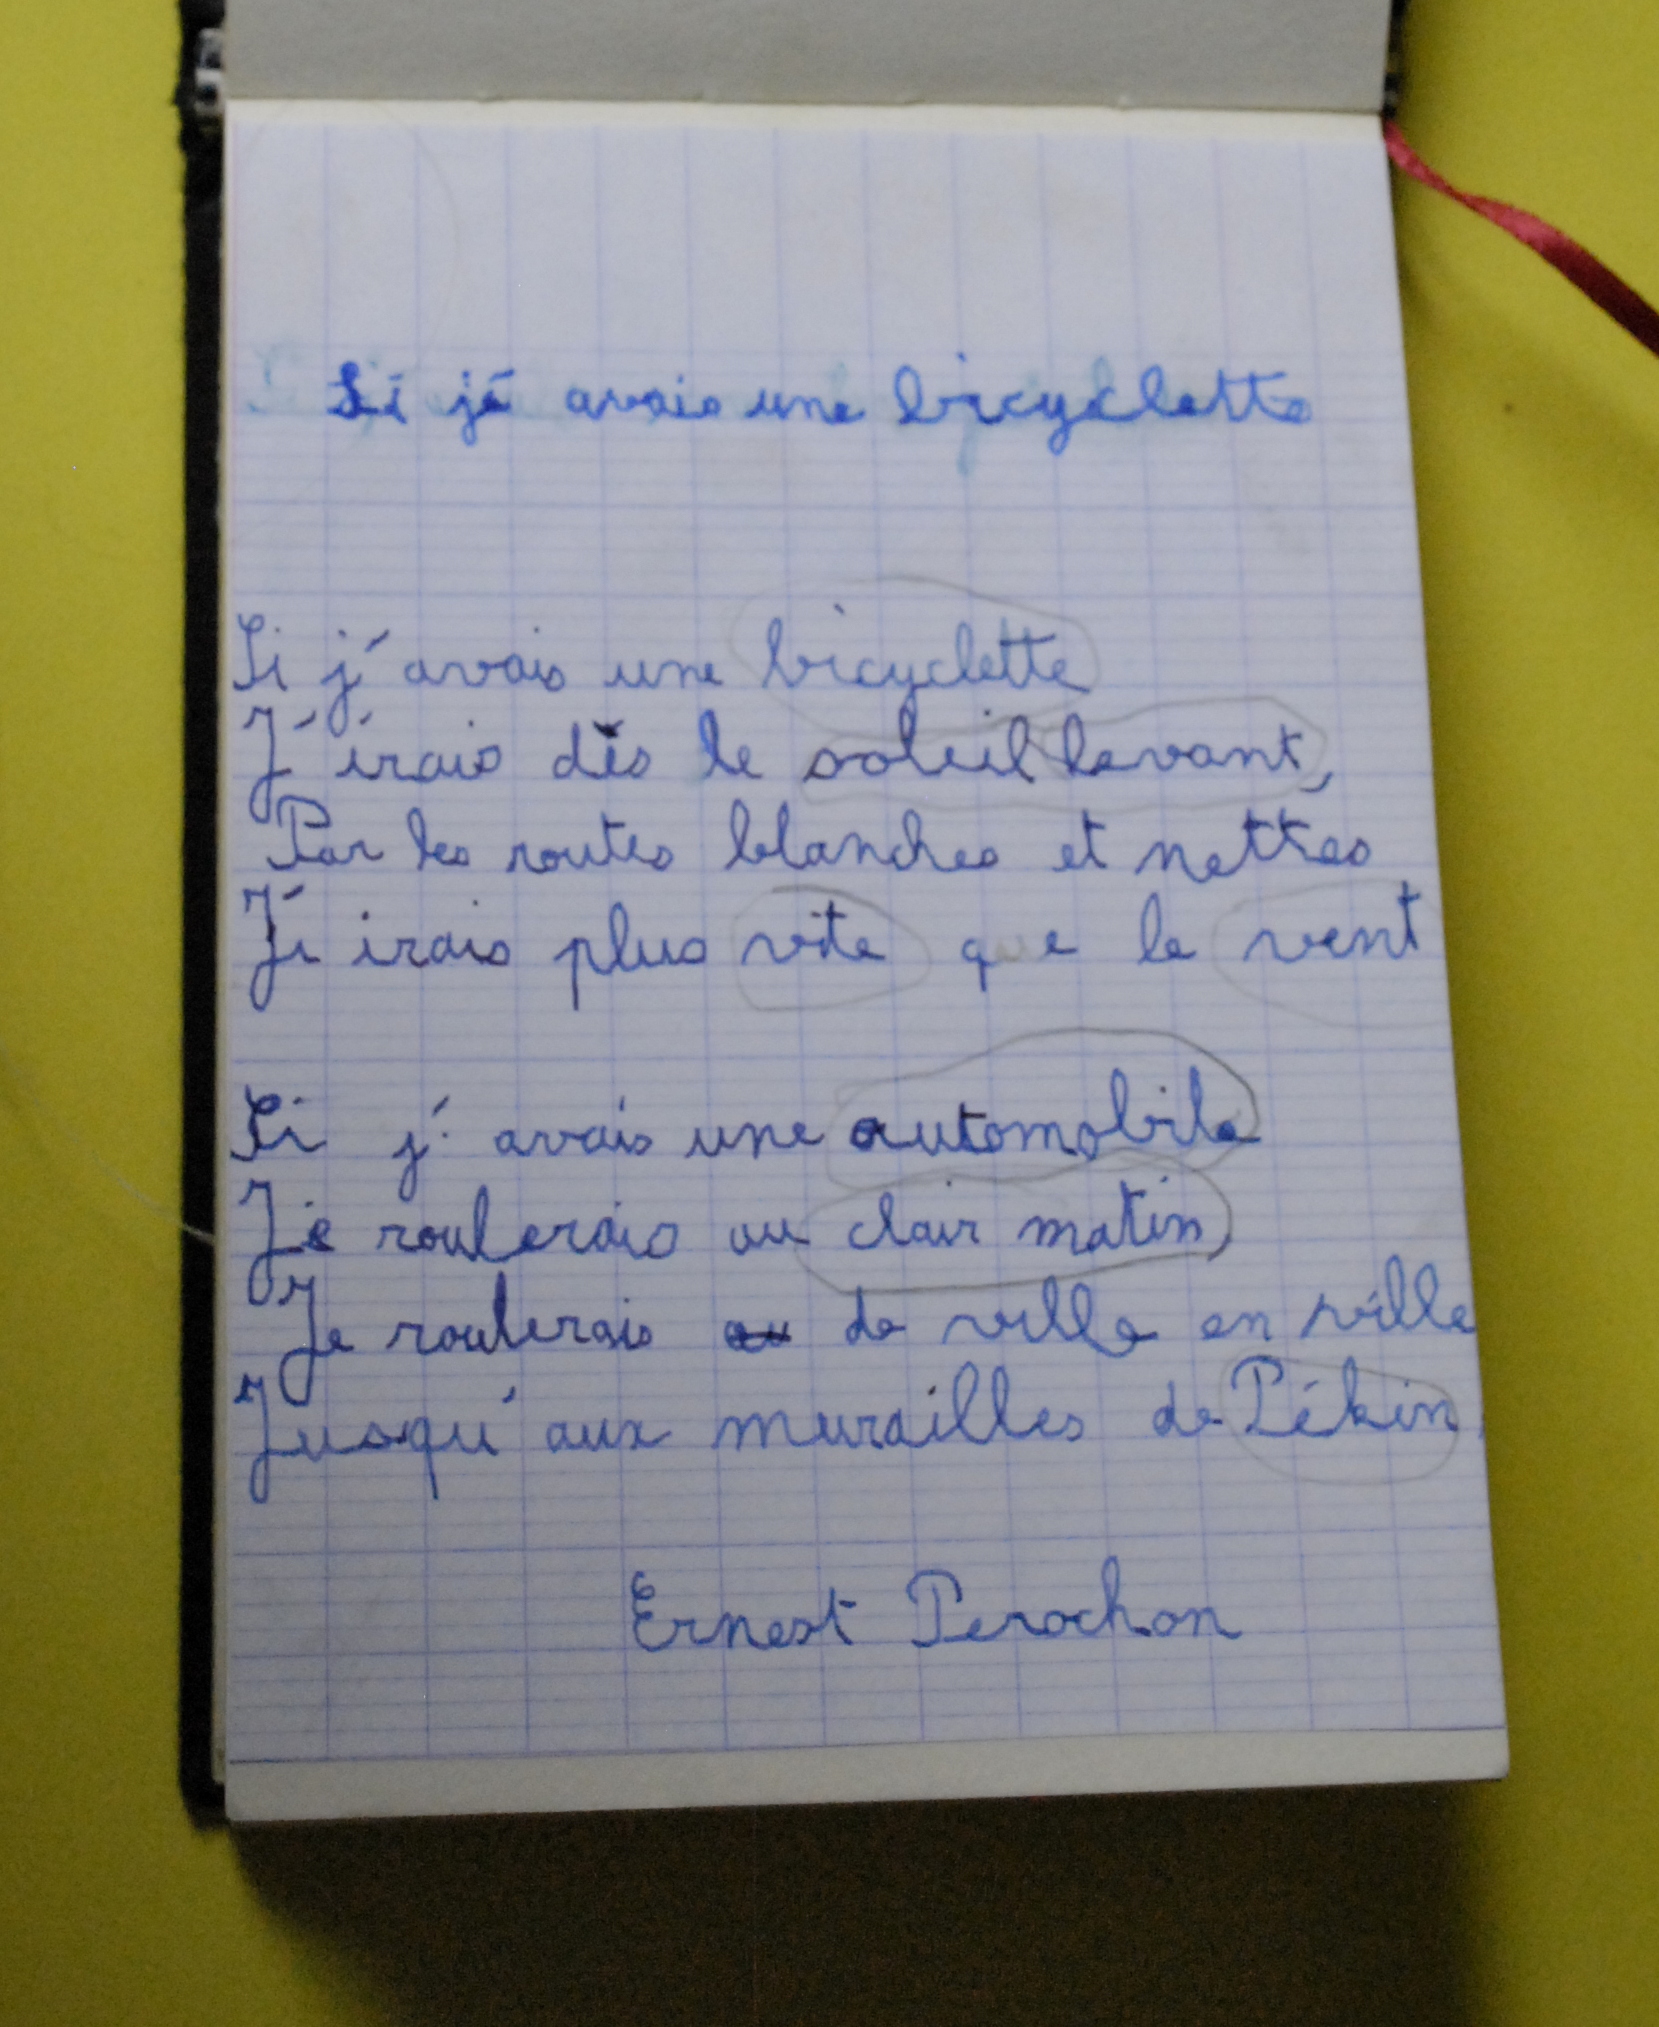 Si jé avais une bicyclette
Si j'avais une bicyclette
J'irais dès le soleil levant,
Par les routes blanches et nettes
J'i irais plus vite que le vent
Si j' avais une automobile
Je roulerais au clair matin
Je roulerais au de ville en ville
Jusqu'aux murailles de Pékin.
Ernest Perochon